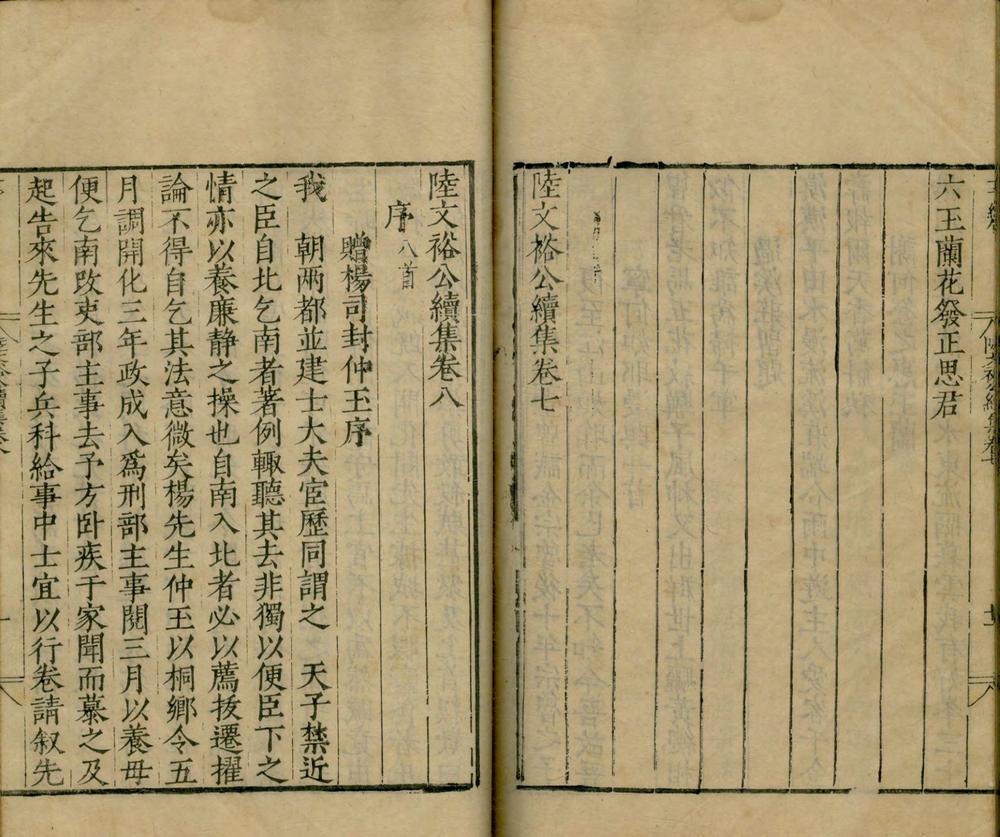 六王蘭花發正思君
陸文裕公續集卷七
陸文裕公續集卷八
序八首
贈楊司封仲玉序
我　朝兩都並建士大夫宦歷同謂之　天子禁近
之臣自北乞南者著例輙聽其去非獨以便臣下之
情亦以養廉静之操也自南入北者必以薦抜遷擢
論不得自乞其法意微矣楊先生仲玉以桐鄉令五
月調開化三年政成入爲刑部主事閱三月以養母
便乞南改吏部主事去予方卧疾于家聞而慕之及
起告來先生之子兵科給事中士宜以行卷請叙先